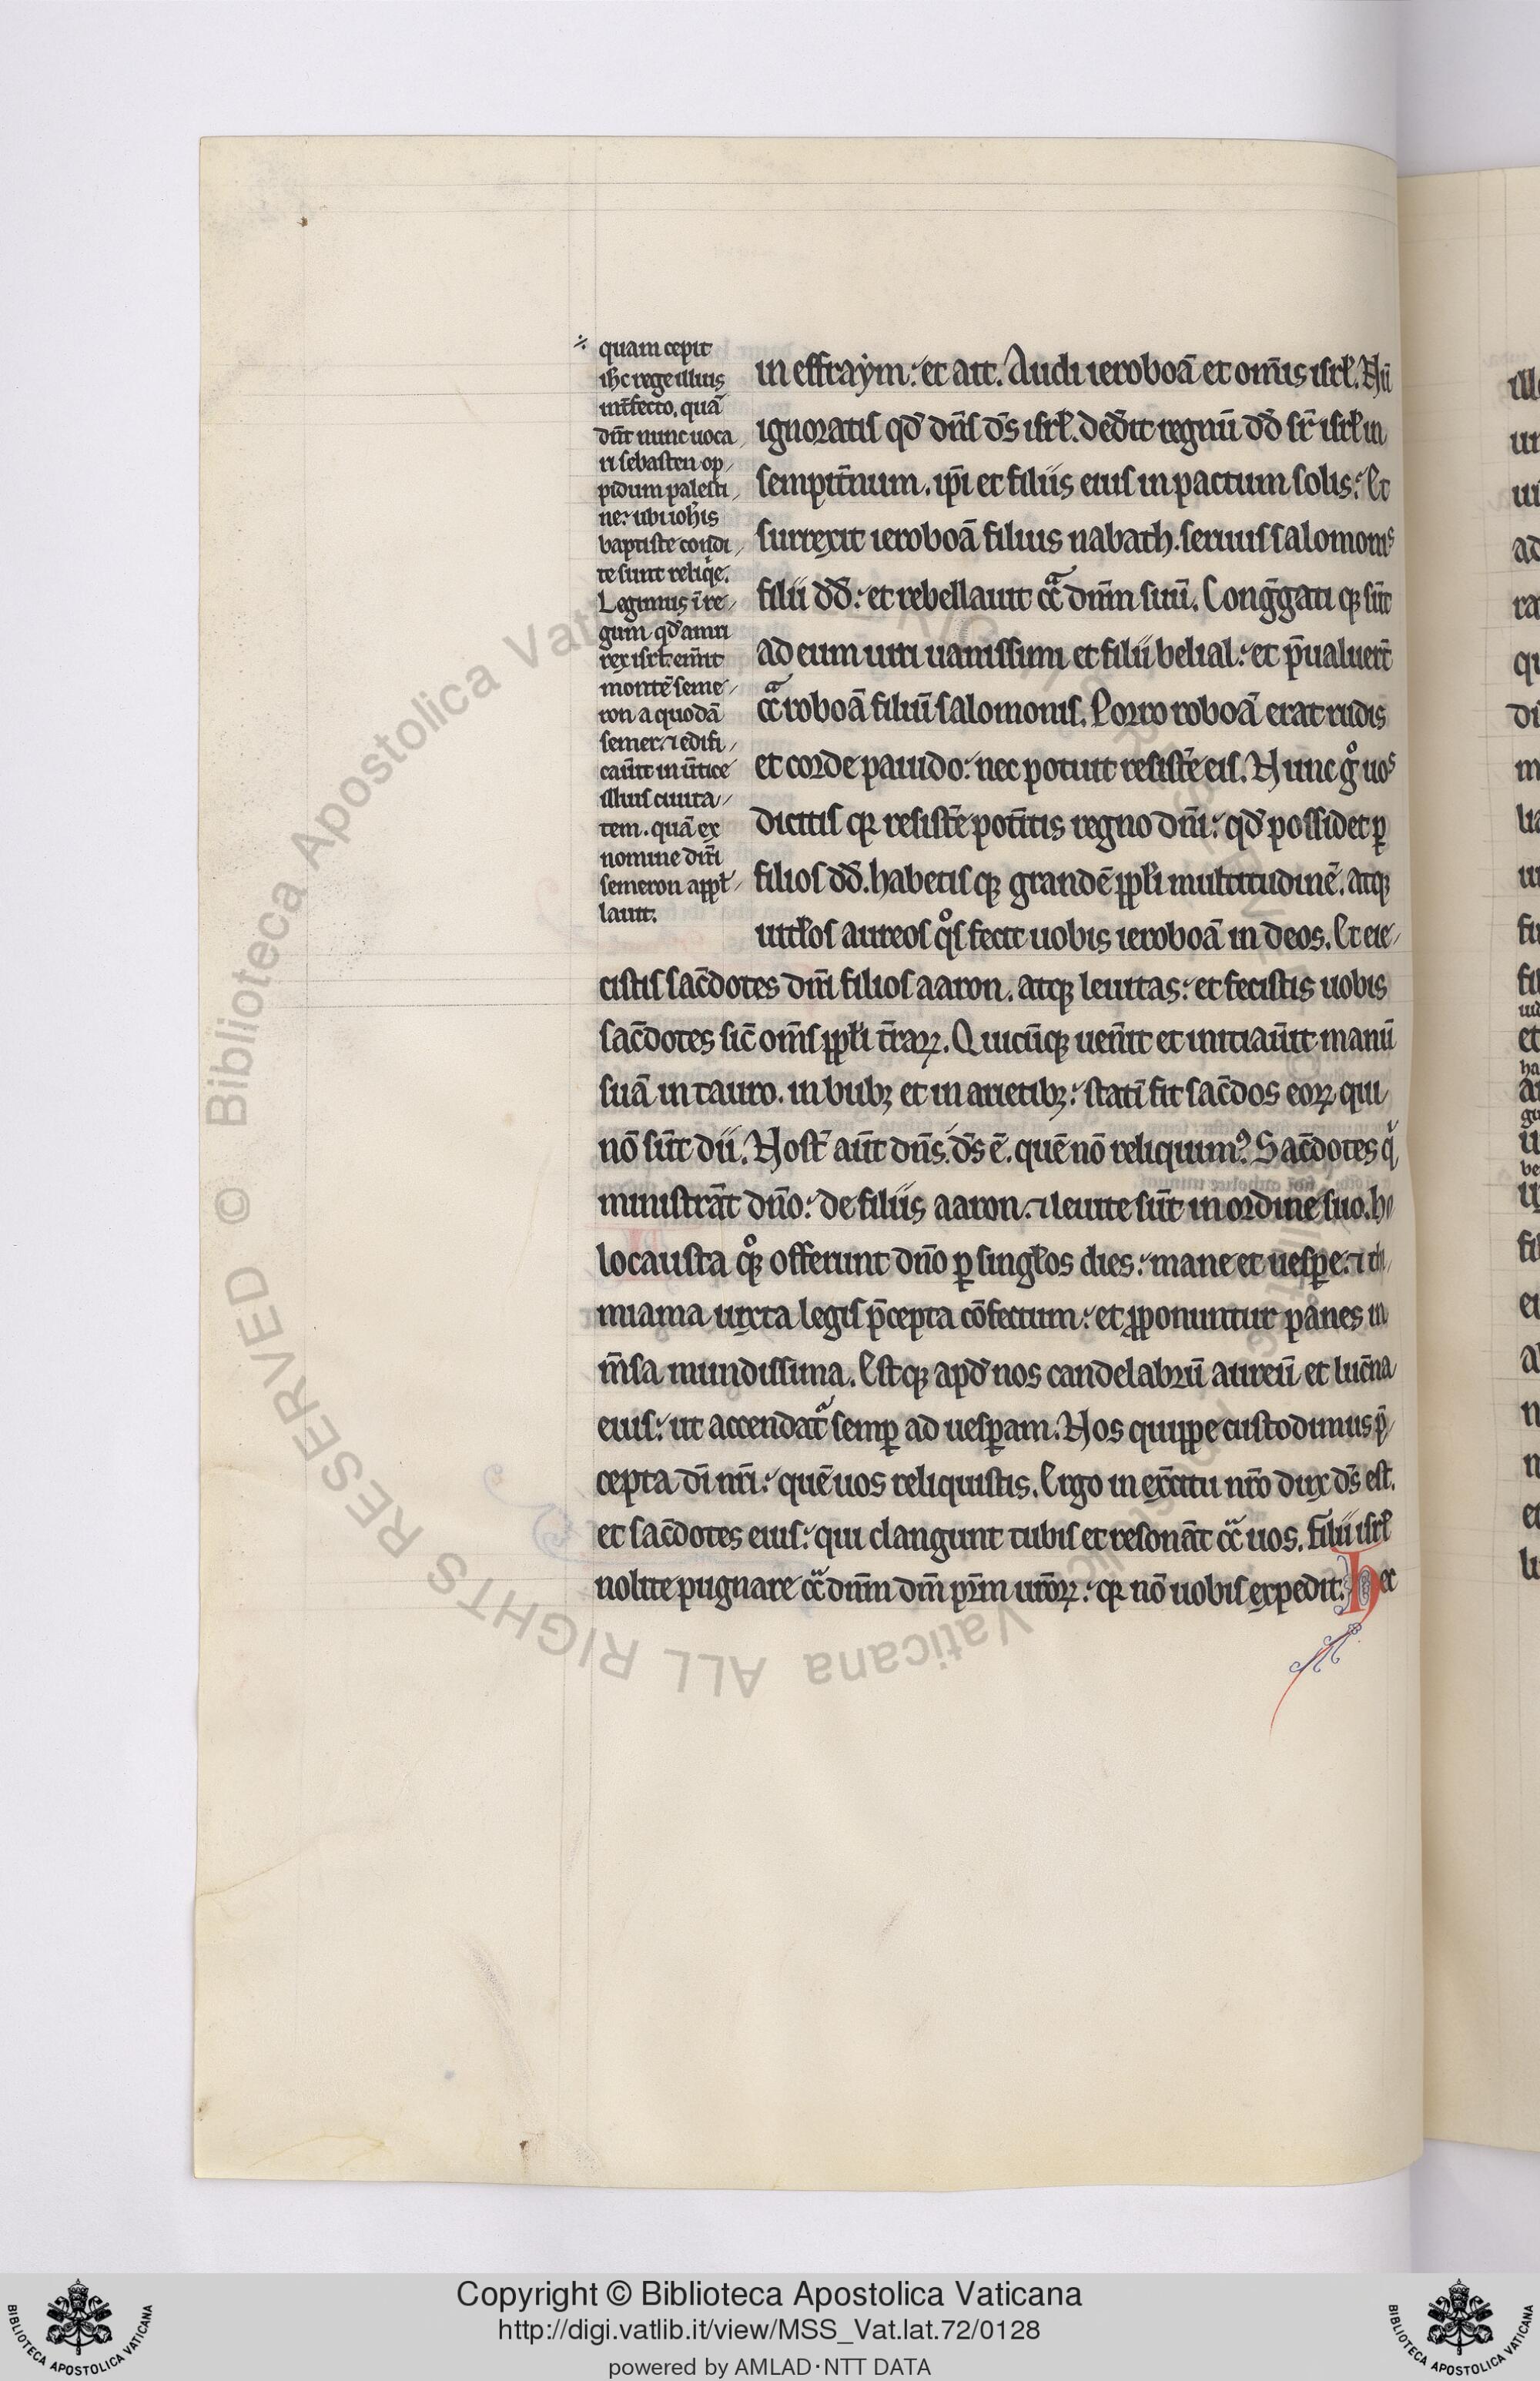 ÷ quam cepit
ih̅c rege illius
int̅fecto. quā
dn̅t nunc uoca
ri sebasten op
pidum palesti
ne. ubi ioh̅is
baptiste condi
te sunt reliq̅e.
Legimus ī re
gum qd̕ amri
rex isrl̕. em̅it
montē seme
ron a quodā
semer. ⁊ edifi
cau̅it in u̅tice
illius ciuita
tem. quā ex
nomine dn̅i
semeron app̅l
lauit.
in effraẏm. et ait. Audi ieroboā et om̅is isrl̕. Nū
ignoratis qd̕ dn̅s d̅s isrl̕. dedit regnū dd̕ sr̅ isrl̕ in
sempit̅num. ip̅i et filiis eius in pactum solis. Et
surrexit ieroboā filius nabath. seruus salomonis
filii dd̕. et rebellauit cͣt dn̅m suū. Cong̅gati qꝫ su̅t
ad eum uiri uanissimi et filii belial. et p̅ualuer̅t
cͣt roboā filiū salomonis. Porro roboā erat rudis
et corde pauido. nec potuit resist̅e eis. Nunc gͦ uos
dicitis qꝛ resist̅e pot̅itis regno dn̅i. qd̕ possidet ꝑ
filios dd̕. habetis qꝫ grandē ppl̕i multitudinē. atqꝫ
uitl̕os aureos qͦs fecit uobis ieroboā in deos. Et eie
cistis sac̅dotes dn̅i filios aaron. atqꝫ leuitas. et fecistis uobis
sac̅dotes sic̅ om̅s ppl̕i t̅raꝝ. Quicūqꝫ uen̅it et initiau̅it manū
suā in tauro. in bubꝫ et in arietibꝫ. statī fit sac̅dos eoꝝ qui
nō su̅t dii. Nost̅ au̅t dn̅s. d̅s ē. quē nō reliquimꝰ. Sac̅dotes qͥ
ministrāt dn̅o. de filiis aaron. ⁊ leuite su̅t in ordine suo. ho
locausta qͦꝫ offerunt dn̅o ꝑ singl̕os dies. mane et uesꝑe. ⁊ thi
miama iuxta legis p̅cepta cōfectum. et ꝓponuntur panes in
m̅sa mundissima. Estqꝫ apd̕ nos candelabrū aureū et luc̅na
eius. ut accendat̅ semꝑ ad uesꝑam. Nos quippe custodimus p̅
cepta dī nr̅i. quē uos reliquistis. Ergo in ex̅citu nr̅o dux d̅s est.
et sac̅dotes eius. qui clangunt tubis et resonāt cͣt uos. Filii isrl̕
nolite pugnare cͣt dn̅m dm̅ pr̅m ur̅oꝝ. qꝛ nō uobis expedit. Hec
Copyright © Biblioteca Apostolica Vaticana
http://digi.vatlib.it/view/MSS_Vat.lat.72/0128
powered by AMLAD·NTT DATA
BIBLIOTECA APOSTOLICA VATICANA
BIBLIOTECA APOSTOLICA VATICANA